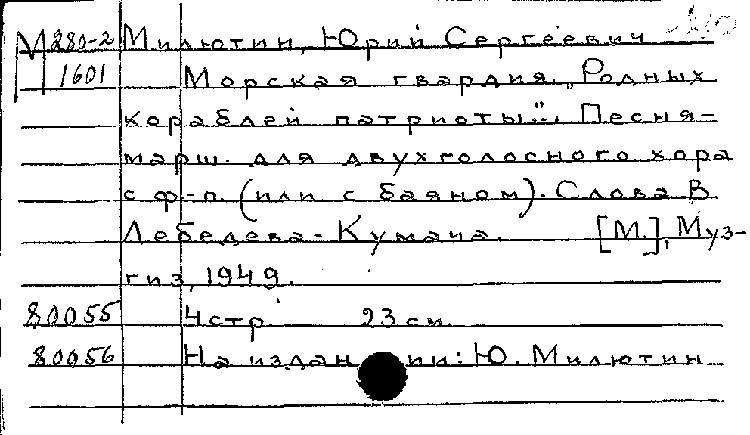 М 280-2 Милютин, Юрий Сергеевич
1601 Морская гвардия. „Родных
кораблей патриоты"... Песня-
марш. для двухголосного хора
с ф-п. (или с баяном). Слова В
Лебедева-Кумача. [М.], Муз-
гиз, 1949.
80055 4 стр. 23 см.
80056 На издании: Ю. Милютин